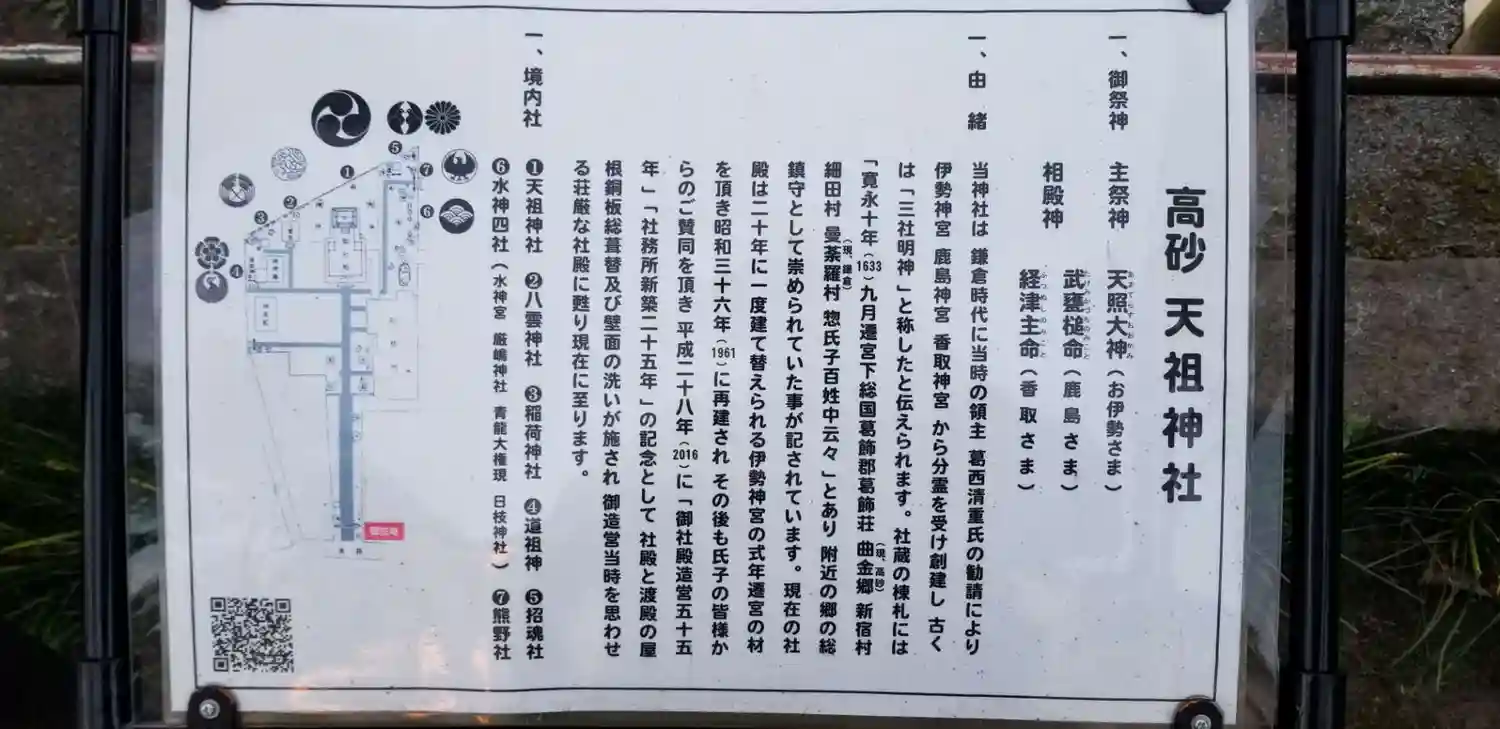 高砂 天祖神社
一、御祭神 主祭神 天照大神（お伊勢さま）
武甕槌命（鹿島さま）
相殿神 経津主命（香取さま）
一、由 緒
当神社は 鎌倉時代に当時の領主 葛西清重氏の勧請により
伊勢神宮 鹿島神宮 香取神宮 から分霊を受け創建し 古く
は「三社明神」と称したと伝えられます。社蔵の棟札には
「寛永十年（1633）九月遷宮下総国葛飾郡葛飾荘 曲金郷（現、高砂） 新宿村
細田村 曼荼羅村（現、鎌倉） 惣氏子百姓中云々」とあり 附近の郷の総
鎮守として崇められていた事が記されています。現在の社
殿は二十年に一度建て替えられる伊勢神宮の式年遷宮の材
を頂き昭和三十六年（1961）に再建され その後も氏子の皆様か
らのご賛同を頂き 平成二十八年（2016）に「御社殿造営五十五
年」「社務所新築二十五年」の記念として 社殿と渡殿の屋
根銅板総葺替及び壁面の洗いが施され 御造営当時を思わせ
る荘厳な社殿に甦り現在に至ります。
一、境内社
❶天祖神社 ❷八雲神社 ❸稲荷神社 ❹道祖神 ❺招魂社
❻水神四社（水神宮 厳嶋神社 青龍大権現 日枝神社） ❼熊野社
❶
❷
❸
❹
❺
❻
❼